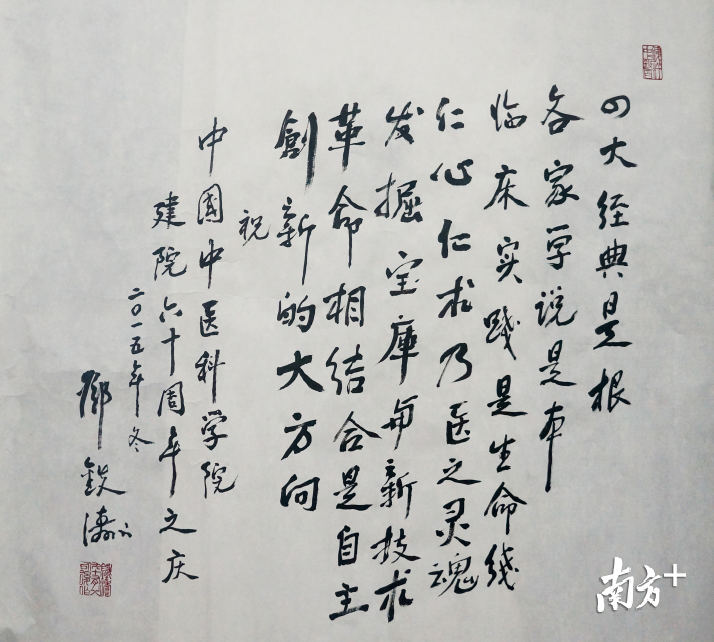 四大经典是根
各家学说是本
临床实践是生命线
仁心仁术乃医之灵魂
发掘宝库与新技术
革命相结合是自主
創新的大方向
祝
中国中医科学院
建院六十周年之庆
二〇一五年冬
鄧鉄涛
南方+